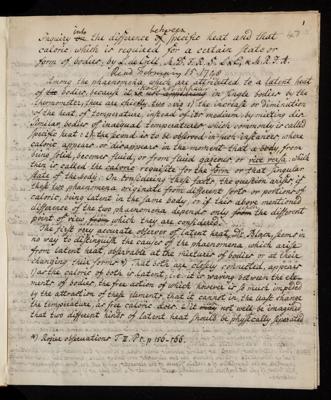 1
Inquiry into the difference between specific heat and that
caloric which is required for a certain state or
form of bodies, by
Read February 15 1798
Among the phaenomena which are attributed to a latent heat
of the bodies, because it is not in single bodies by the
thermometer, there are chiefly two viz 1) the increase or diminution
of the heat of temperature, instead of its medium, by mixing dis-
similar bodies of inequal temperatures which commonly is called
specific heat: 2) the second is to be observed in such instances where
caloric appears or disappears in the moment that a body from
being solid, becomes fluid, or from fluid gazeous, or vice versa. which
then is called the caloric requisite for the form or that singular
state of the body. On considering these facts, the question arises, if
these two phaenomena originate from different sorts or portions of
caloric, being latent in the same body, or if their above mentioned
difference of the two phaenomena depends only from the different
point of view from which they are considered.
The first very accurate observer of latent heat, seems in
no way to distinguish the causes of the phaenomena which arise
from latent heat observable at the mixtures of bodies or at their
changing their forms. That both are closely connected, appears
1) as the caloric of both is latent, i.e. it is moving between the ele-
ments of bodies, the free action of which however is so much impeded
by the attraction of these elements, that it cannot, in the least change
the temperature, as free caloric does. 2) it may not well be imagined
that two different kinds of latent heat should be physically separated
*) observationes T. II. P. 1. p 156-166.